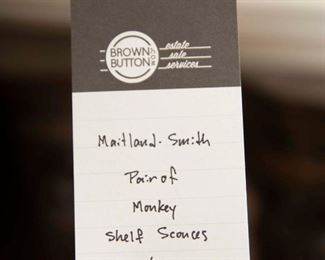 BROWN
BUTTON
.COM
estate
sale
services
Maitland-Smith
Pair of
Monkey
Shelf Sconces